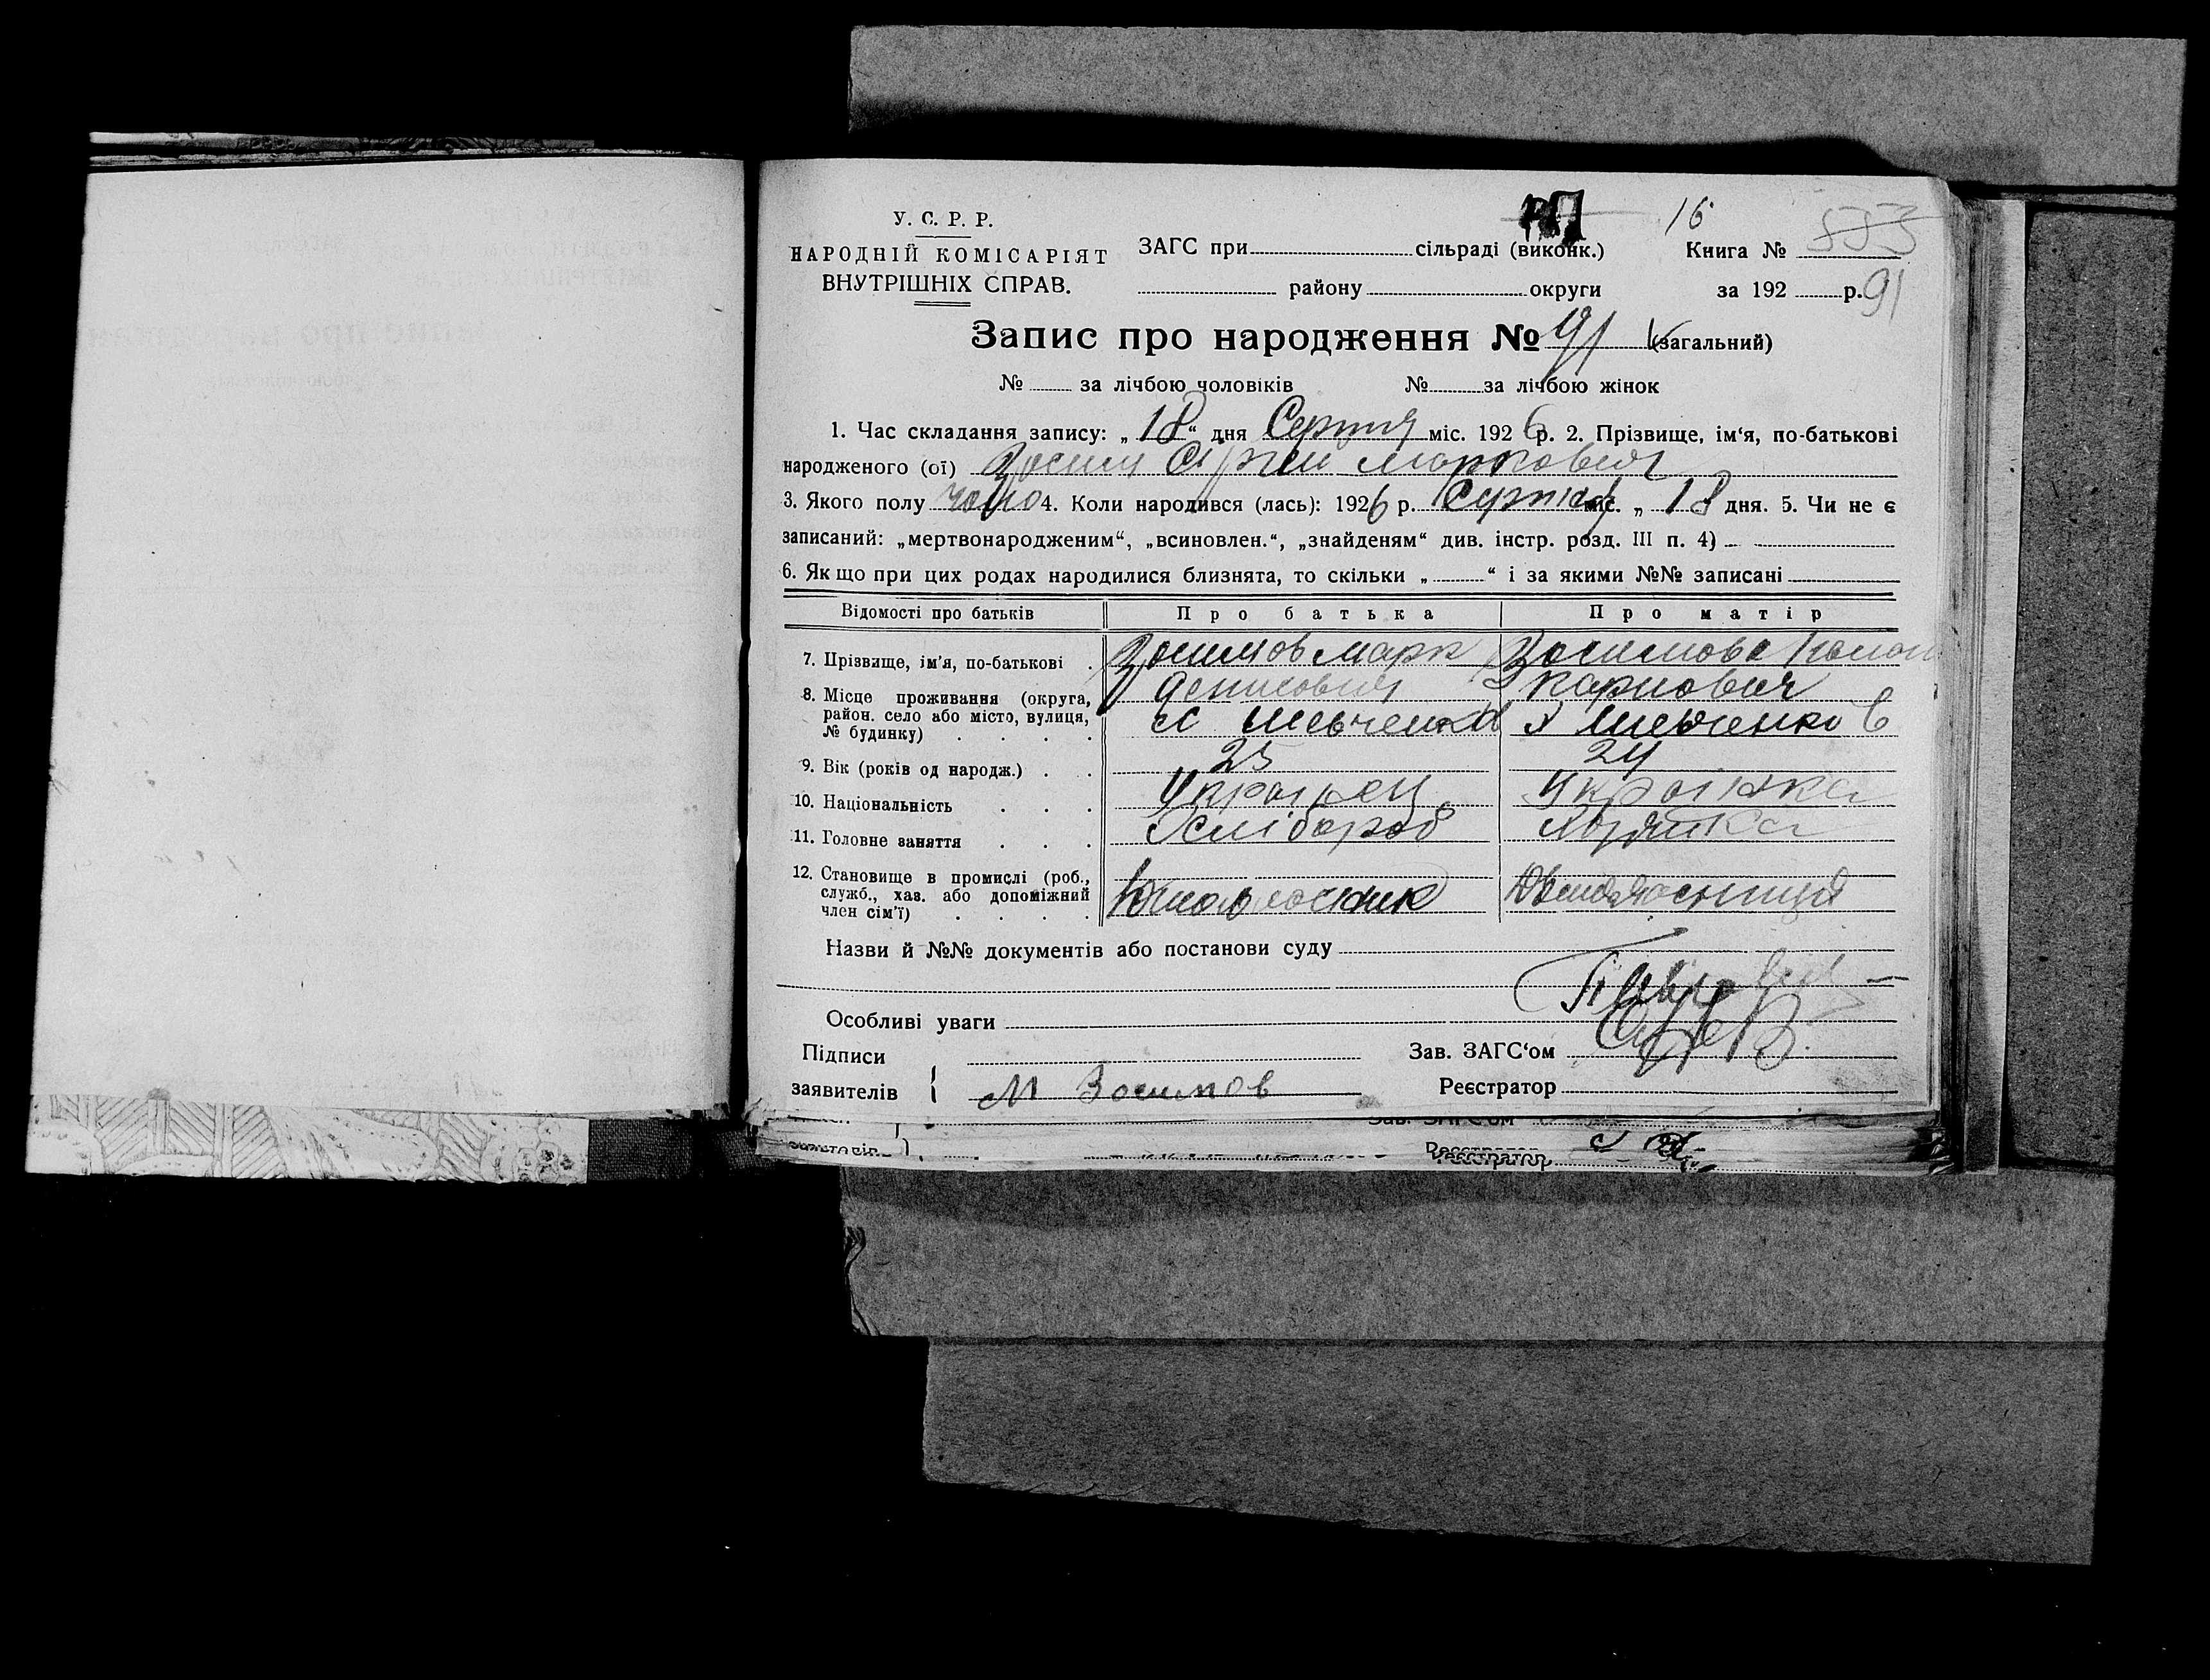 У. С. Р. Р.
НАРОДНІЙ КОМІСАРІЯТ
ВНУТРІШНІХ СПРАВ.
16
ЗАГС при сільраді (виконк.) Книга № 553
району округи за 192 р. 91
Запис про народження № 91 (загальний)
№ за лічбою чоловіків № за лічбою жінок
1. Час складання запису: „ 18 “ дня Серпня міс. 1926 р. 2. Прізвище, ім‘я, по-батькові
народженого (ої) Зосим Сергій Маркович
3. Якого полу чоло 4. Коли народився (лась): 1926 р. Серпня міс. „ 18 дня. 5. Чи не є
записаний: „мертвонародженим“, „всиновлен.“, „знайденям“ див. інстр. розд. III п. 4)
6. Якщо при цих родах народилися близнята, то скільки „ “ і за якими №№ записані
Відомості про батьків Про батька Про матір
7. Прізвище, ім'я, по-батькові Зосимов Марк Зосимова
8. Місце проживання (округа, Денисович Карпович
район. село або місто, вулиця, х Шевченков х Шевченков
№ будинку)
9. Вік (років од народж.) 25 24
10. Національність Украінец Украінка
11. Головне заняття Хлібороб
12. Становище в промислі (роб.,
служб., хаз. або допоміжний
член сім'ї)
Назви й №№ документів або постанови суду
Особливі уваги
Підписи Зав. ЗАГС‘ом
заявителів М Зосимов Реєстратор
Зав. ЗАГС'ом
заявителів Реєстратор